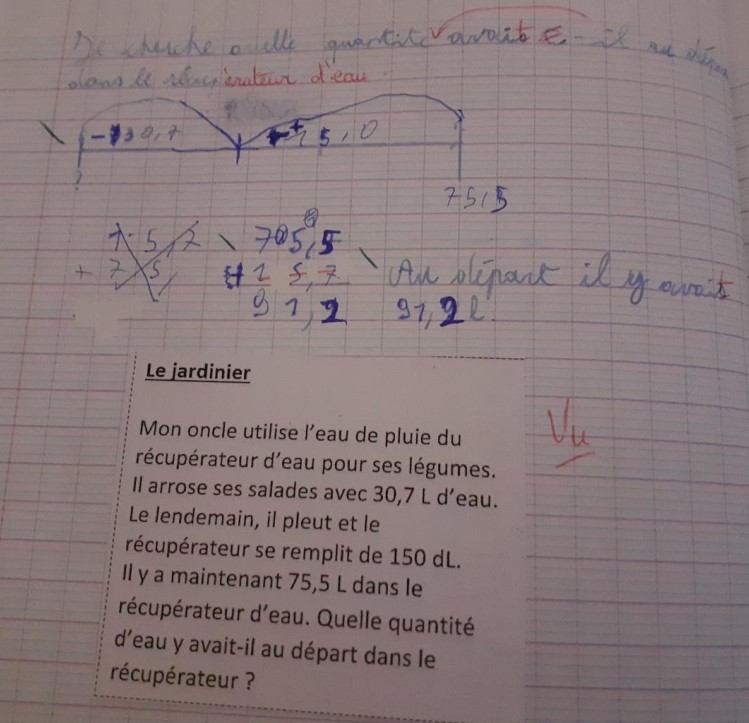 Je cherche quelle quantité avait - il au départ
dans le récupérateur d'eau.
- 30,7 + 15,0
?
75,5
75,5
+ 15,7
91,2
Au départ il y avait
91,2 l.
Vu
Le jardinier
Mon oncle utilise l'eau de pluie du
récupérateur d'eau pour ses légumes.
Il arrose ses salades avec 30,7 L d'eau.
Le lendemain, il pleut et le
récupérateur se remplit de 150 dL.
Il y a maintenant 75,5 L dans le
récupérateur d'eau. Quelle quantité
d'eau y avait-il au départ dans le
récupérateur ?